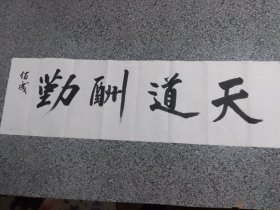 天道酬勤
佰成